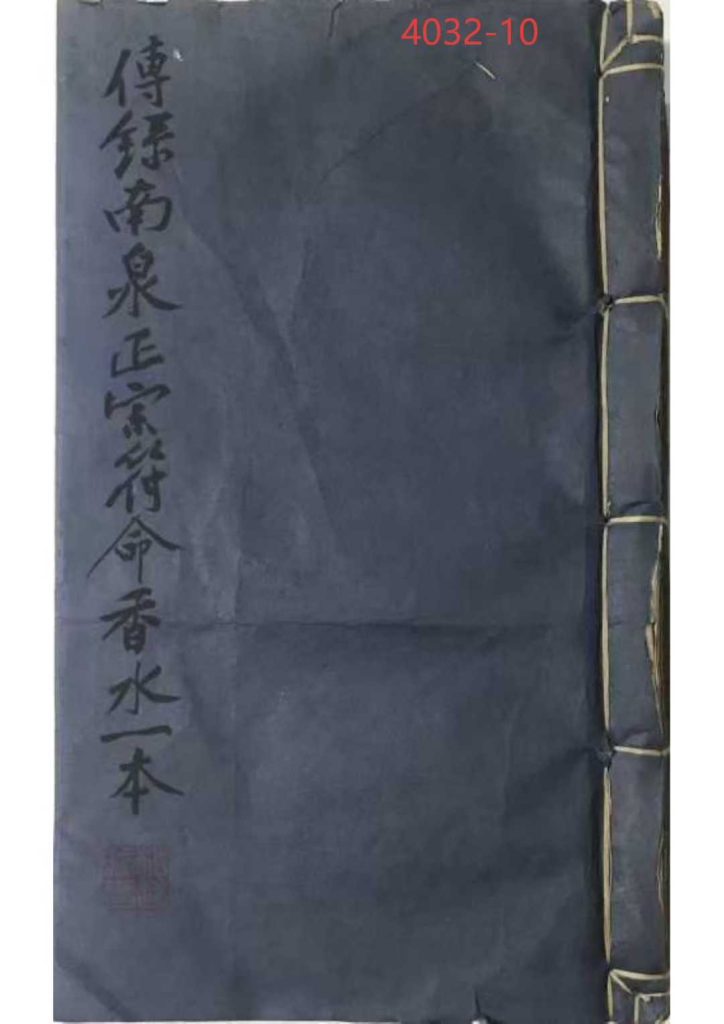 4032-10
傳錄南泉正宗符命香水一本